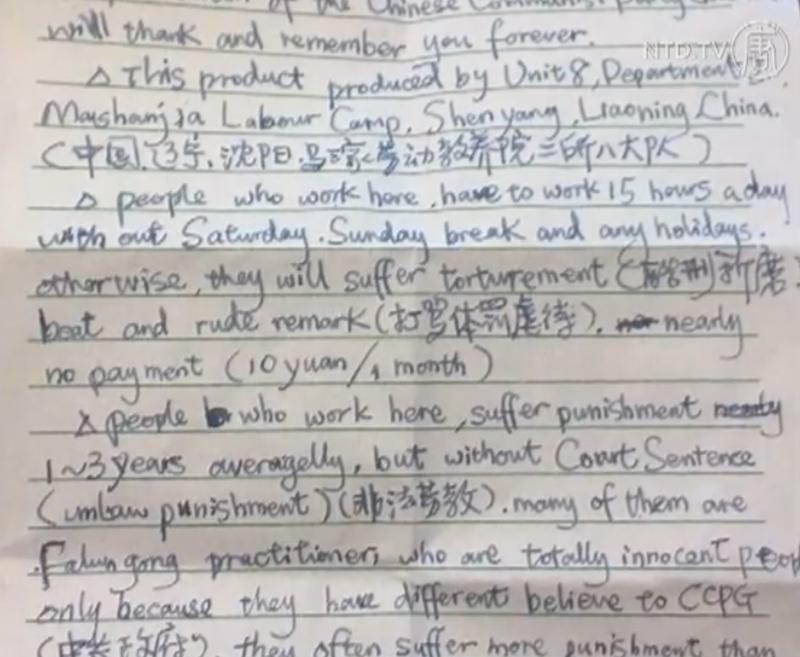 of the Chinese Communist Party
will thank and remember you forever.
NTD.TV
△ This product produced by Unit 8, Department
Mashanjia Labour Camp, Shenyang, Liaoning China.
(中国,辽宁,沈阳,马三家劳动教养院二所八大队)
△ people who work here, have to work 15 hours a day
with out Saturday. Sunday break and any holidays.
otherwise, they will suffer torturement ( 折磨
beat and rude remark (打骂体罚虐待). nearly
no payment (10 yuan/1 month)
△ people who work here, suffer punishment nearly
1~3 years averagelly, but without Court Sentence
(unlaw punishment) (非法劳教). many of them are
Falun gong practitioner, who are totally innocent peop
only because they have different believe to CCPG
(中共政府), they often suffer more punishment than